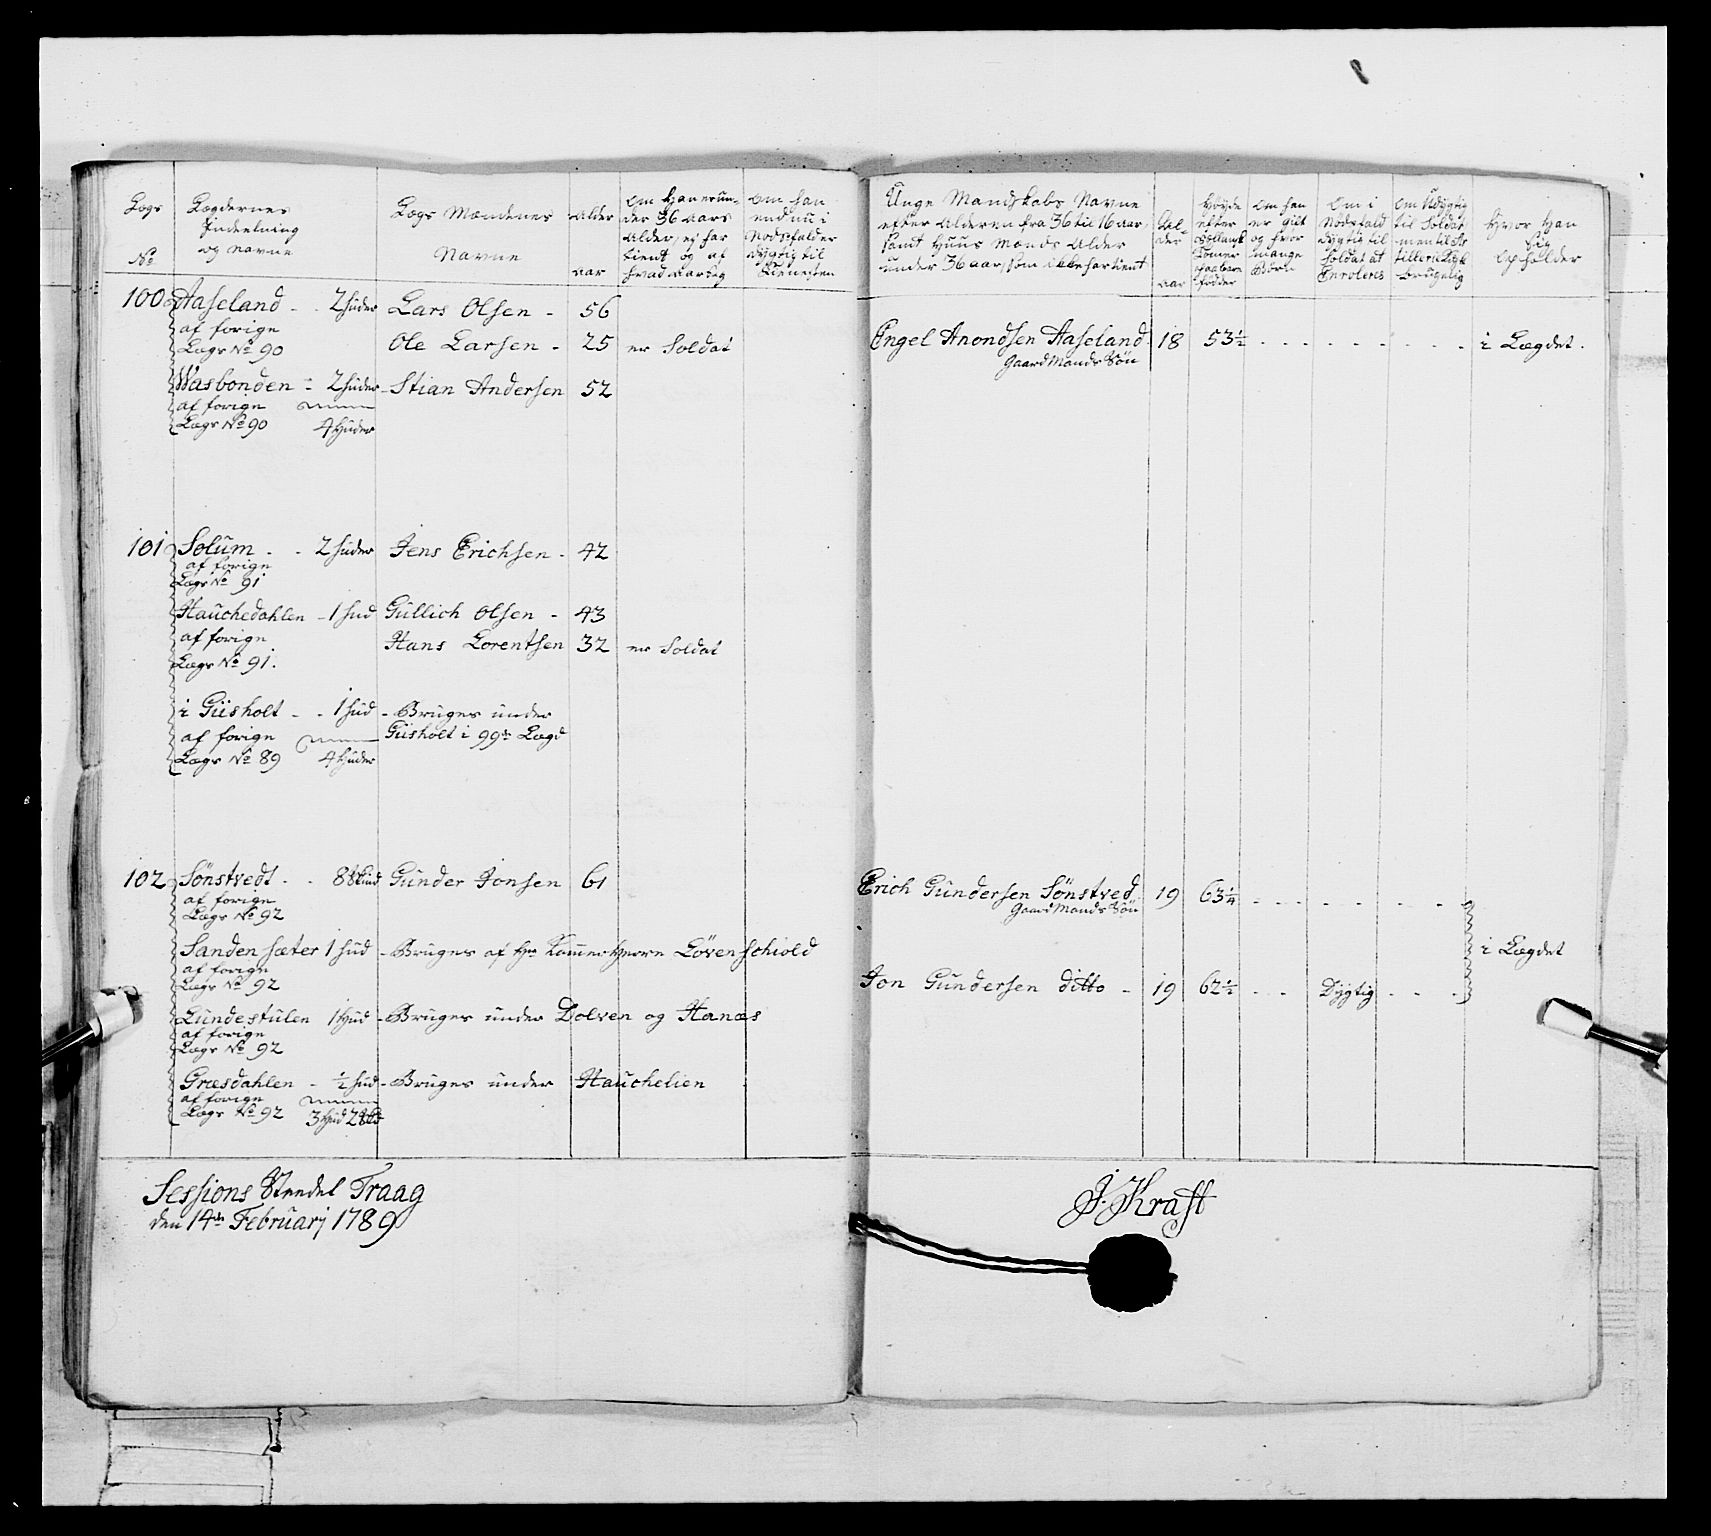 Lægs
No
Lægdernes
Indeelning
og Navne
Lægs Mændenes
Navne
Alder
aar
Om han er un-
der 36 aars
Alder, ej har
tient og af
hvad aarsag
Om han
end nu i
Nodsfalder
dygtig til
Tienesten
100 Aaseland - - 2 huder Lars Olsen - 56
af forige
Lægs No 90
Ole Larsen - 25 er Soldat
Wasbonden - 2 huder - Stian Andersen 52
af forige
Lægs No 90 4 Huder
101 Solum - - 2 huder Jens Erichsen - 42
af forige
Lægs No 91
Hauchedahlen - 1 hud Gullich Olsen - 43
af forige
Hans Lorentsen 32 er Soldat
Lægs No 91.
i Giisholt - - 1 hud - Bruges under
af forige Giisholt i 99de Lægd
Lægs No 89 4 Huder
102 Sönstvedt - - 8 Skind Gunder Jonsen 61
af forige
Lægs No 92
Sanden sæter 1 hud - Bruges af Hr Kammer Herre Lövenschiold
af forige
Lægs No 92
Lundestulen 1 Hud - Bruges under Dolven og Hanæs
af forige
Lægs No 92
Græsdahlen - ½ hud - Bruges under Hauchelien
af forige
Lægs No 92 3 Hud 2 Skd
Sessions Stædet Traag
den 14de Februarj 1789
Unge Mandskabs Navne
efter Alderen fra 36 til 16 aar
samt Huus Mænds Alder
under 36 aar, som ikke har tient
Al-
der
aar
Höyde
efter
Hollansk
Tomer
paa bare
födder
Om han
er gift
og hvor
mange
Börn
Om i
Nödsfald
dygtig til
Soldat at
Enrolleres
Om Udygtig
til Soldat
men til Ar
tillerie Kusk
brugelig
Hvor Han
sig
opholder
Engel Anondsen Aaseland 18 53½ - - - - - - - - i Lægdet.
Gaard Mands Sön
Erich Gundersen Sönstved 19 63¼ - - - - - - -
Gaard Mands Sön
i Lægdet
Jon Gundersen ditto - 19 62½ - - Dygtig - - -
J. Kraft